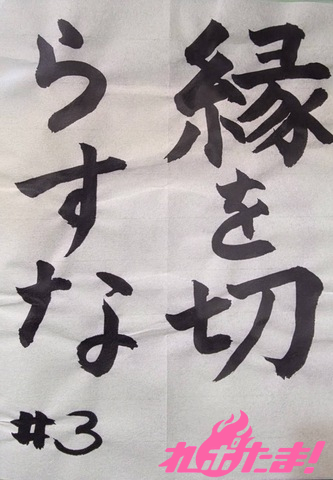 縁を切
らすな
#3
れポたま!